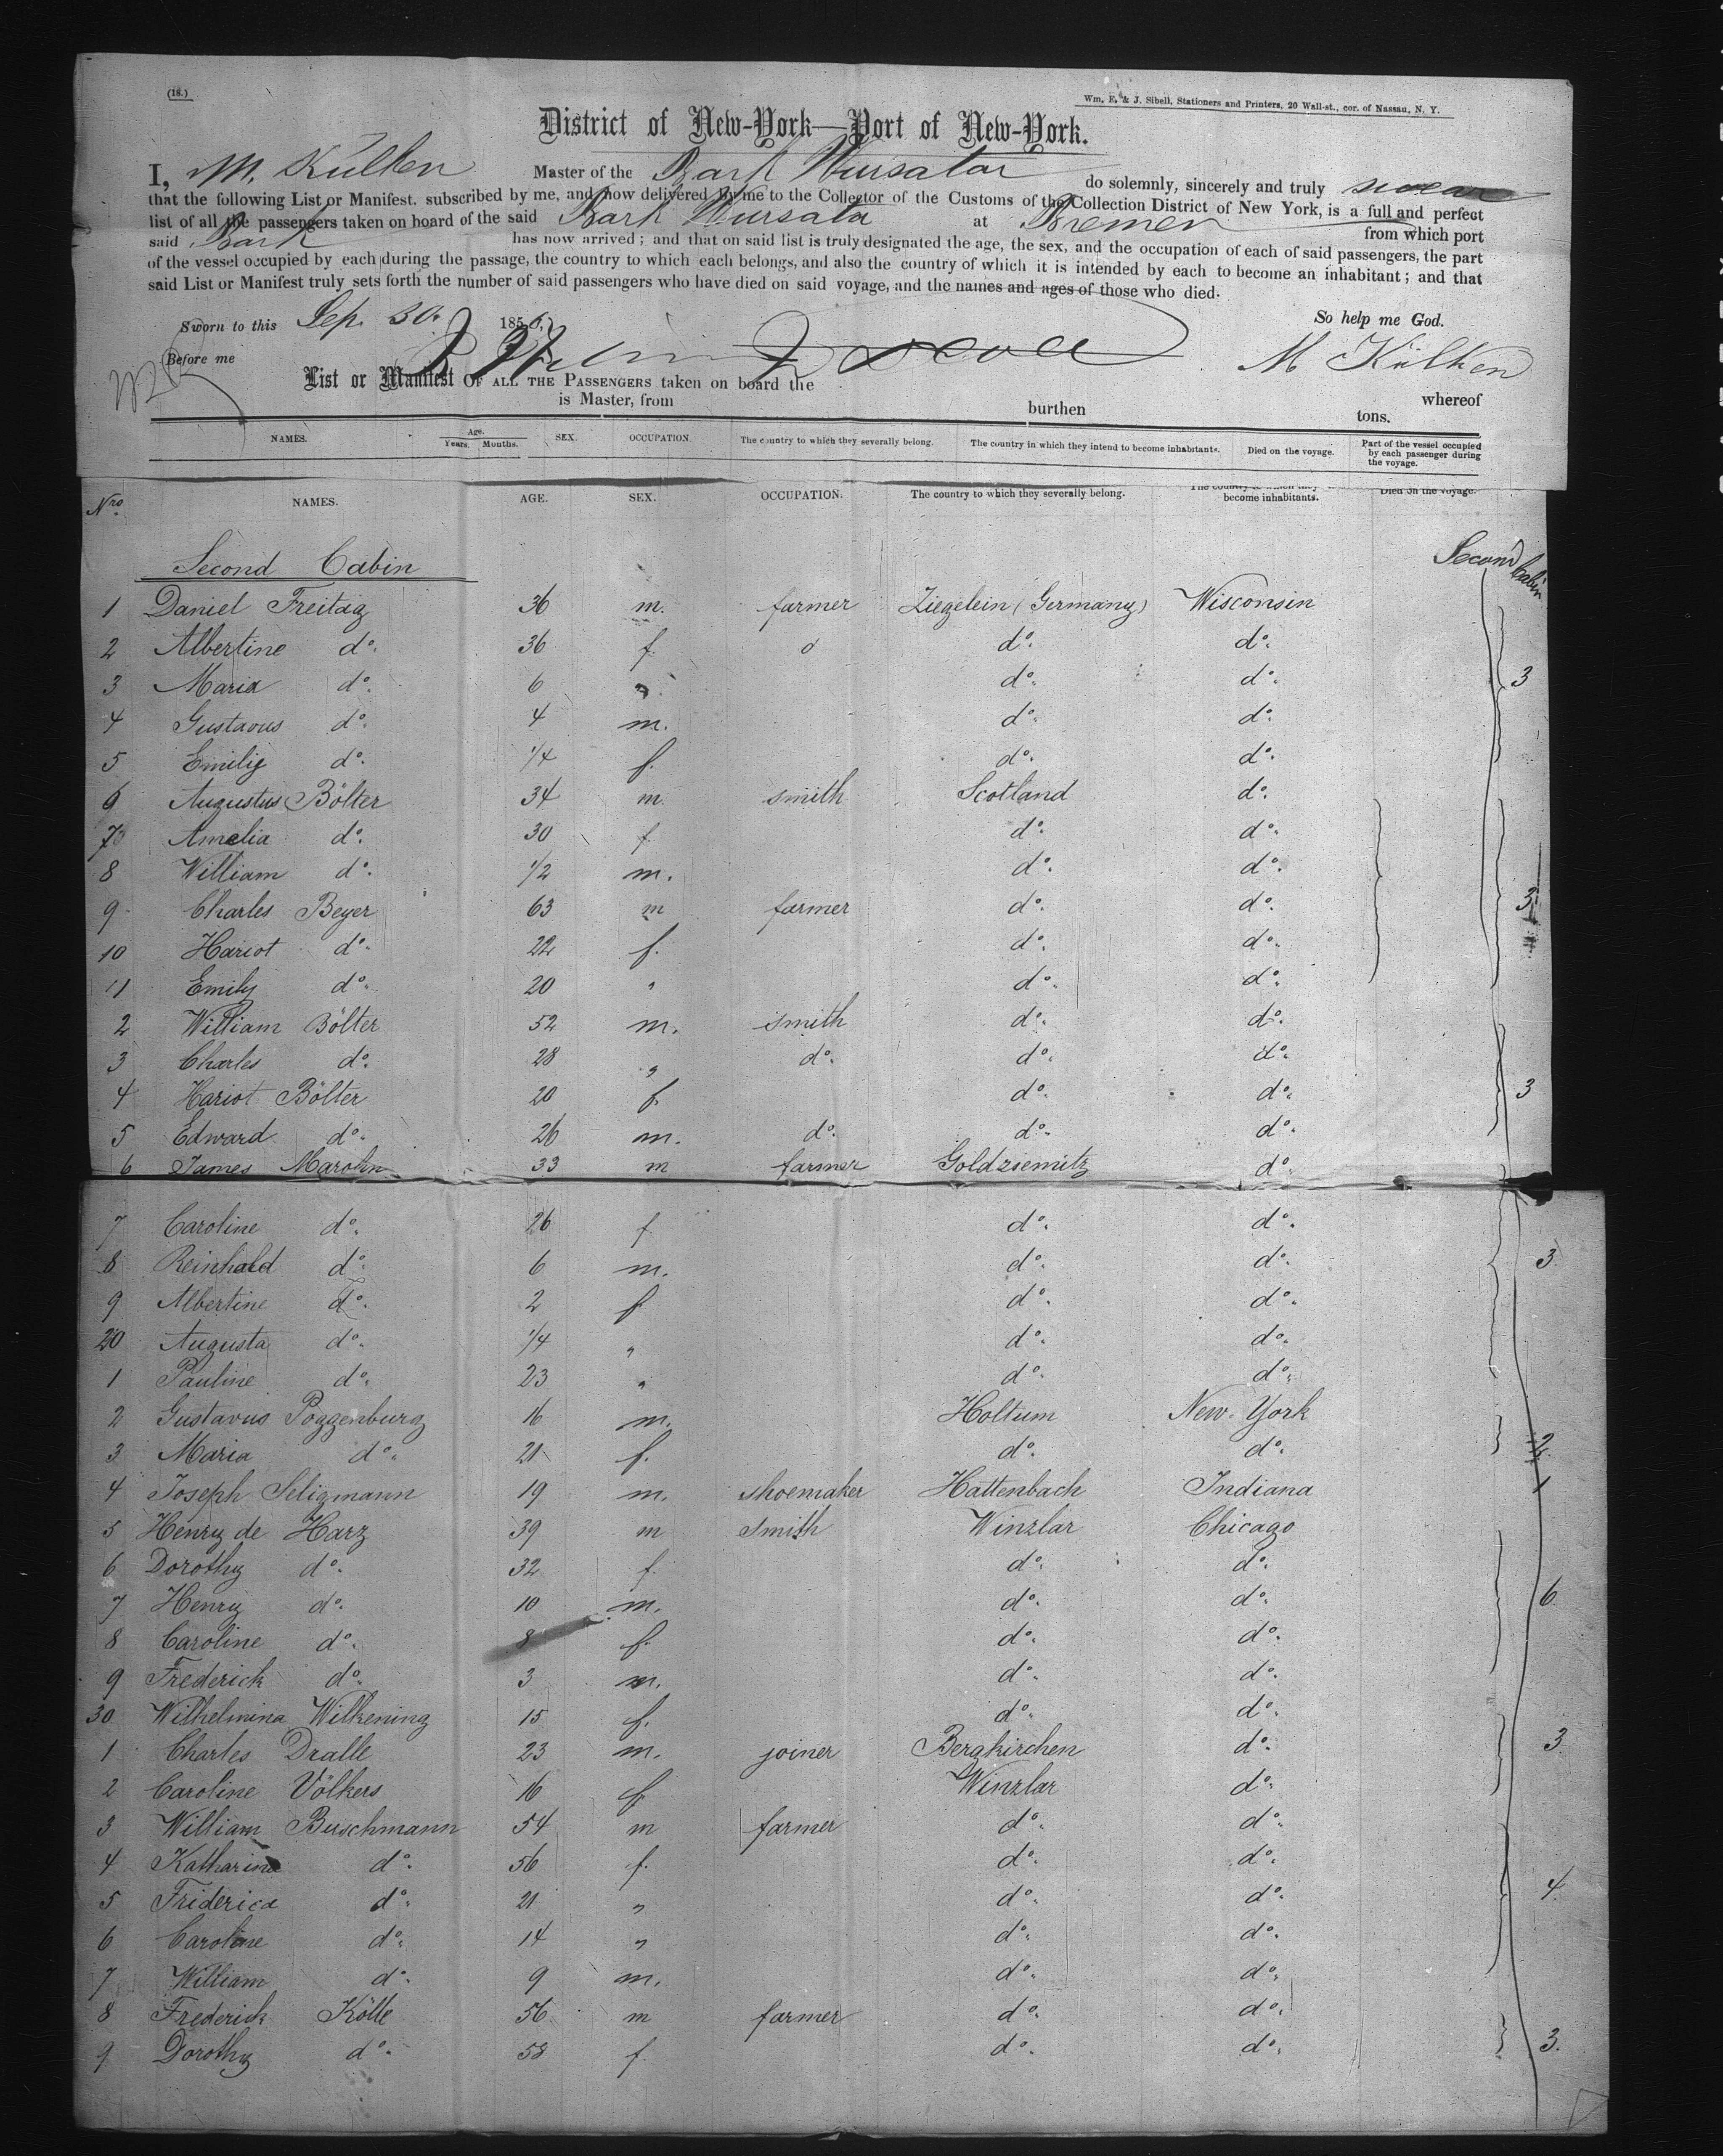 (18.)
Wm. E. & J. Sibell, Stationers and Printers, 20 Wall-st., cor. of Nassau, N. Y.
District of New-York—Port of New-York.
I, M. Külken Master of the Bark Wursata do solemnly, sincerely and truly swear
that the following List or Manifest, subscribed by me, and now delivered by me to the Collector of the Customs of the Collection District of New York, is a full and perfect
list of all the passengers taken on board of the said Bark Wursata at Bremen from which port
said Bark has now arrived; and that on said list is truly designated the age, the sex, and the occupation of each of said passengers, the part
of the vessel occupied by each during the passage, the country to which each belongs, and also the country of which it is intended by each to become an inhabitant; and that
said List or Manifest truly sets forth the number of said passengers who have died on said voyage, and the names and ages of those who died.
Sworn to this Sep. 30. 1856, So help me God.
Before me M Külken
List or Manifest OF ALL THE PASSENGERS taken on board the whereof
is Master, from burthen tons.
NAMES. Age. Years. Months. SEX. OCCUPATION. The country to which they severally belong. The country in which they intend to become inhabitants. Died on the voyage. Part of the vessel occupied by each passenger during the voyage.
Nro. NAMES. AGE. SEX. OCCUPATION. The country to which they severally belong. become inhabitants. Died on the voyage.
Second Cabin Second Cabin
1 Daniel Freitag 36 m. farmer Ziegelein (Germany) Wisconsin
2 Albertine do. 36 f. do. do.
3 Maria do. 6 " do. do. 3
4 Gustavus do. 4 m. do. do.
5 Emilie do. 1/4 f. do. do.
6 Augustus Bölter 34 m. smith Scotland do.
7 Amelia do. 30 f. do. do.
8 William do. 1/2 m. do. do.
9 Charles Beyer 63 m farmer do. do. 3
10 Hariot do. 22 f. do. do.
11 Emily do. 20 " do. do.
2 William Bölter 52 m. smith do. do.
3 Charles do. 28 " do. do. do.
4 Hariot Bölter 20 f. do. do. 3
5 Edward do. 26 m. do. do. do.
6 James Marohn 33 m farmer Goldziemitz do.
7 Caroline do. 26 f do. do.
8 Reinhald do. 6 m. do. do. 3.
9 Albertine do. 2 f do. do.
20 Augusta do. 1/4 " do. do.
1 Pauline do. 23 " do. do.
2 Gustavus Poggenburg 16 m. Holtum New-York
3 Maria do. 21 f. do. do. 2.
4 Joseph Seligmann 19 m. shoemaker Hattenbach Indiana 1
5 Henry de Harz 39 m smith Winzlar Chicago
6 Dorothy do. 32 f. do. do.
7 Henry do. 10 m. do. do. 6
8 Caroline do. 8 f. do. do.
9 Frederick do. 3 m. do. do.
30 Wilhelmina Wilkening 15 f. do. do.
1 Charles Dralle 23 m. joiner Bergkirchen do. 3
2 Caroline Völkers 16 f. Winzlar do.
3 William Buschmann 54 m farmer do. do.
4 Katharina do. 56 f. do. do.
5 Friderica do. 21 " do. do. 4.
6 Caroline do. 14 " do. do.
7 William do. 9 m. do. do.
8 Frederick Kölle 56 m farmer do. do.
9 Dorothy do. 58 f. do. do. 3.